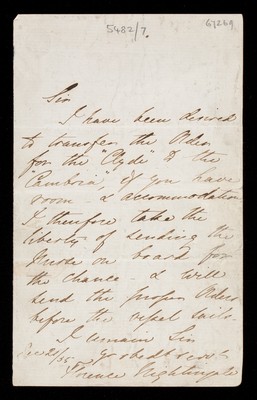 5482/7.
67269
Sir
I have been desired
to transfer the Order
for the "Clyde" to the
"Cambria", if you have
room & accommodation
I therefore take the
liberty of sending the
Nurse on board for
the chance - & will
send the proper Order
before the vessel sails.
I remain Sir
Dec 21/55 Yr obedt servt
Florence Nightingale